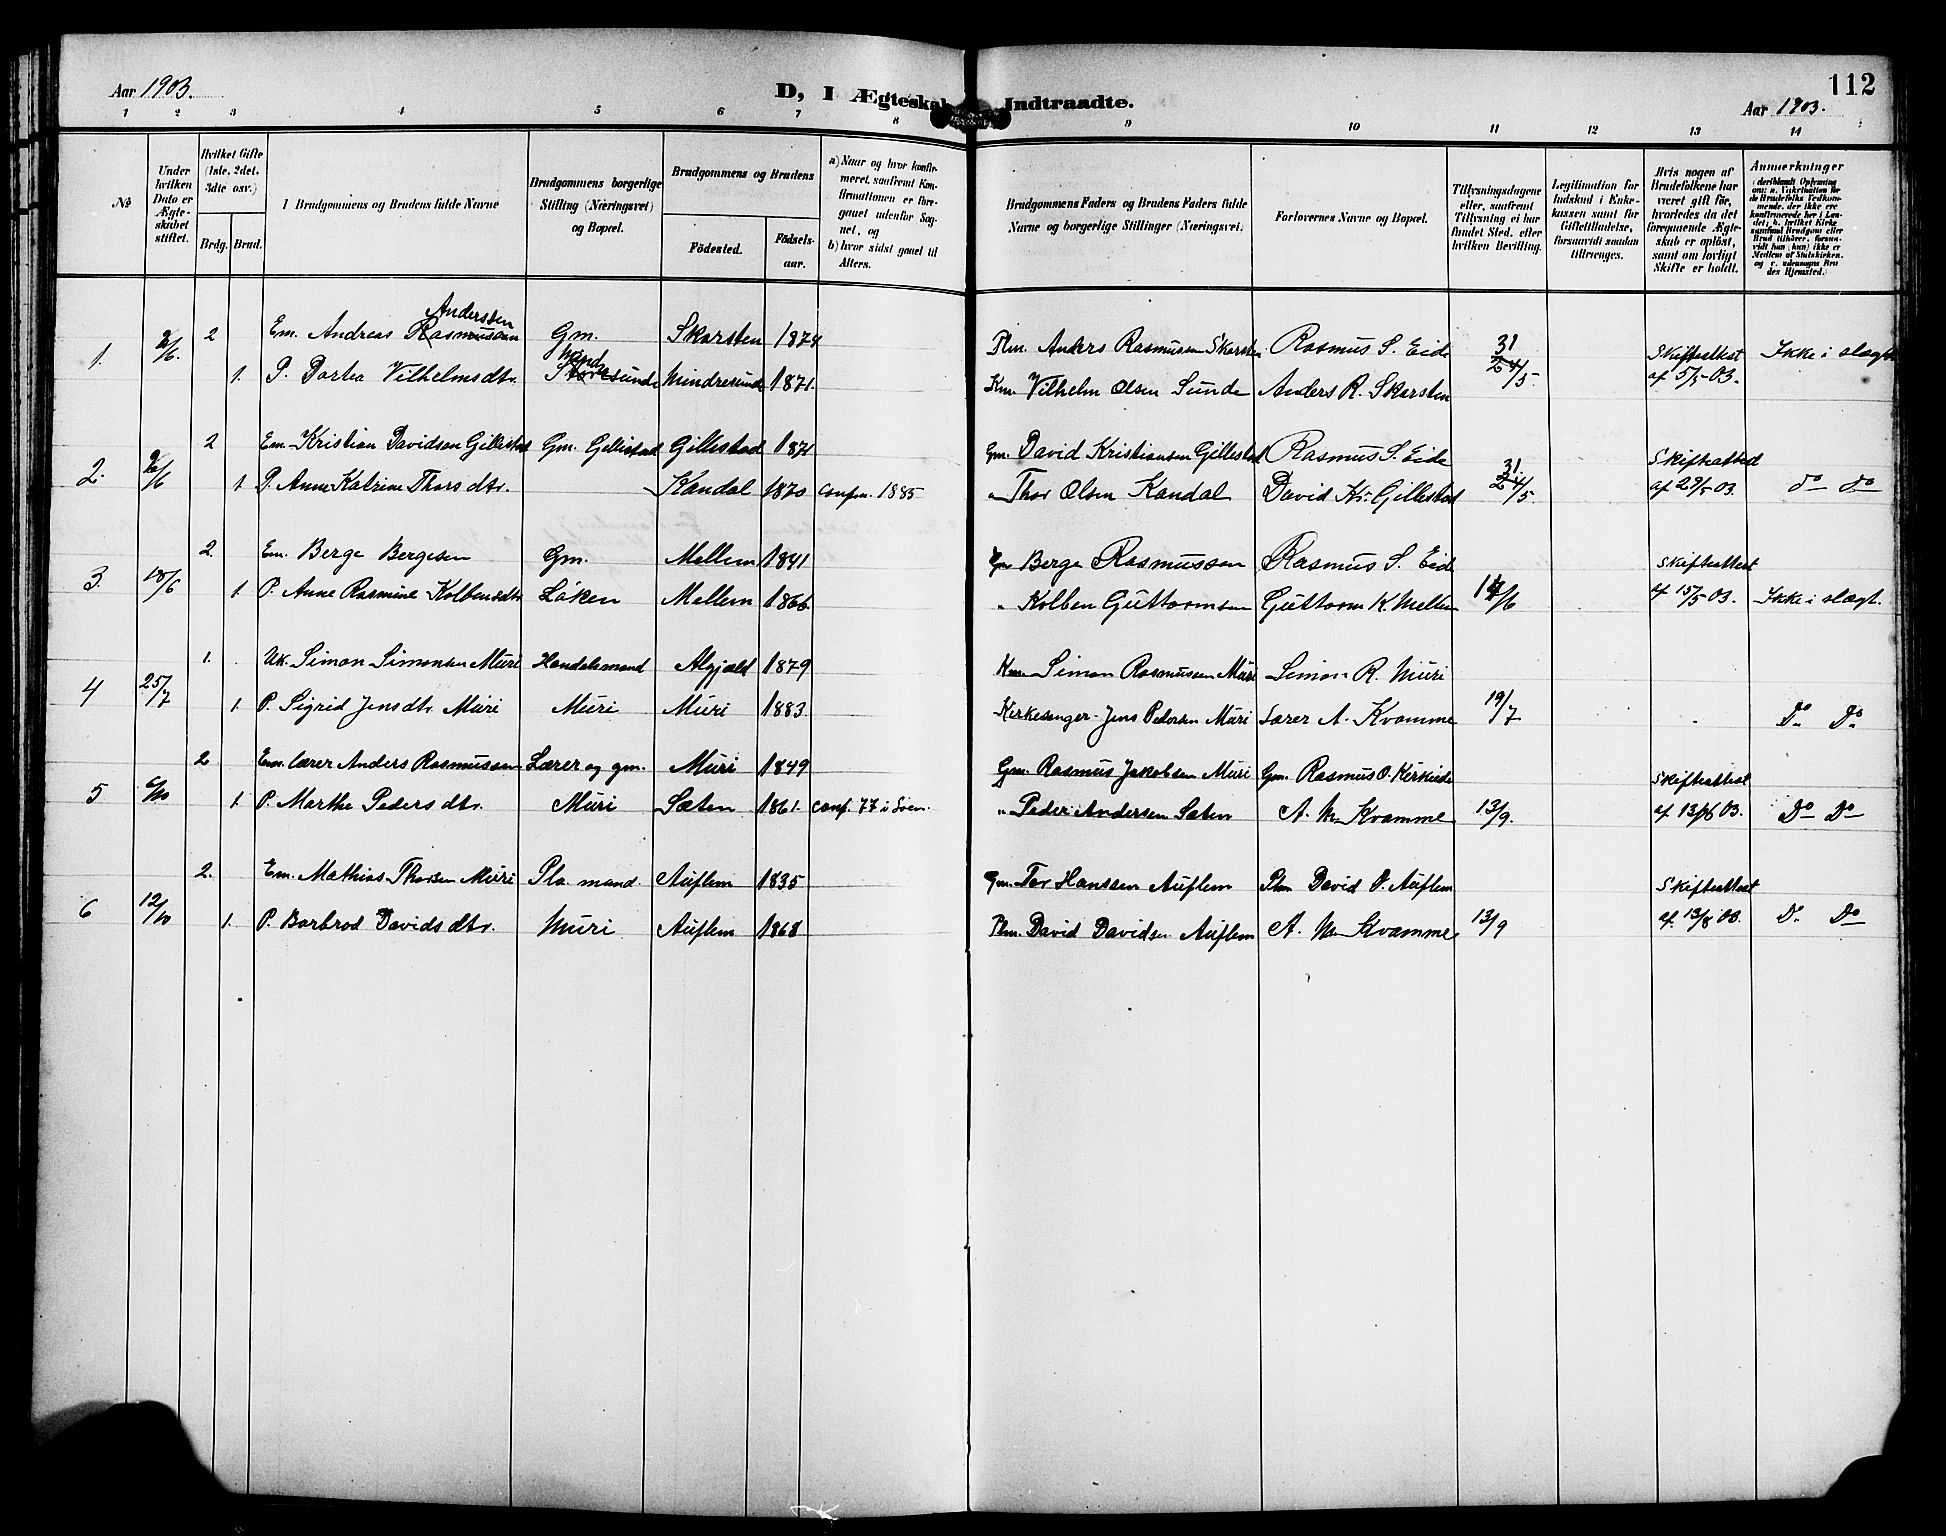 112
Aar 1903.
D, I Ægteskab Indtraadte.
Aar 1903.
1 2 3 4 5 6 7 8 9 10 11 12 13 14
No
Under hvilken Dato er Ægteskabet stiftet.
Hvilket Gifte (1ste, 2det, 3die osv.)
Brdg. Brud.
Brudgommens og Brudens fulde Navne
Brudgommens borgerlige Stilling (Næringsvei) og Bopæl.
Brudgommens og Brudens
Födested.
Födsels-aar.
a) Naar og hvor konfirmeret, saafremt Konfirmationen er foregaaet udenfor Sognet, og
b) hvor sidst gaaet til Alters.
Brudgommens Faders og Brudens Faders fulde Navne og borgerlige Stillinger (Næringsvei.
Forlovernes Navne og Bopæl.
Tillysningsdagene eller, saafremt Tillysning ei har fundet Sted, efter hvilken Bevilling.
Legitimation for Indskud i Enkekassen samt for Giftetilladelse, forsaavidt saadan tiltrænges.
Hvis nogen af Brudefolkene har været gift før, hvorledes da det foregaaende Ægteskab er oplöst, samt om lovligt Skifte er holdt.
Anmærkninger
1. 2/6. 2 Em. Andreas Rasmussen Andersten Gm. Skarsten 1874 Plm. Anders Rasmussen Skarsten Rasmus S. Eide 31 Skifteattest Ikke i slægt
1. P. Dortea Vilhelmsdtr. Storesunde Mindresunde 1871. Km. Vilhelm Olsen Sunde Anders R. Skarsten 24/5. af 5/5 03.
2. 2/6 2 Em. Kristian Davidsen Gillestad Gm. Gillestad Gillestad 1871 Gm. David Kristiansen Gillestad Rasmus S. Eide 31. Skifteattest
1. P. Anne Katrine Thorsdtr. Kandal 1870 Confm. 1885 " Thor Olsen Kandal David Kr. Gillestad 24/5. af 29/5 03. do do
3. 18/6 2. Em. Berge Bergesen Gm. Mellem 1841 Gm Berge Rasmussen Rasmus S. Eide Skifteattest
1. P. Anne Rasmine Kolbensdtr Løken Mellem 1866. " Kolben Guttormsen Guttorm K. Mellem 14/6 af 15/5 03. Ikke i slægt.
4 25/7 1. Uk. Simon Simonsen Muri Handelsmand Algjeld 1879 Km Simon Rasmussen Muri Simon R. Muri
1. P. Sigrid Jensdtr. Muri Muri Muri 1883. Kirkesanger Jens Pedersen Muri Lærer A. Kvamme 19/7 Do Do
5 6/10 2 Em. lærer Anders Rasmussen Lærer og gm. Muri 1849 Gm. Rasmus Jakobsen Muri Gm. Rasmus O. Kirkeide Skifteattest
1. P. Marthe Pedersdtr. Muri Sæten 1861. Conf. 77 i Loen. " Peder Andersen Sæten A. M. Kvamme 13/9. af 13/8 03. Do Do
6 12/10 2. Em. Mathias Thorsen Muri Pla. mand. Auflem 1835 Gm. Tor Hanssen Auflem Plm David D. Auflem Skifteattest
1. P. Barbrod Davidsdtr. Muri Auflem 1868 Plm. David Davidsen Auflem A. M. Kvamme 13/9 af. 13/8 03. Do Do